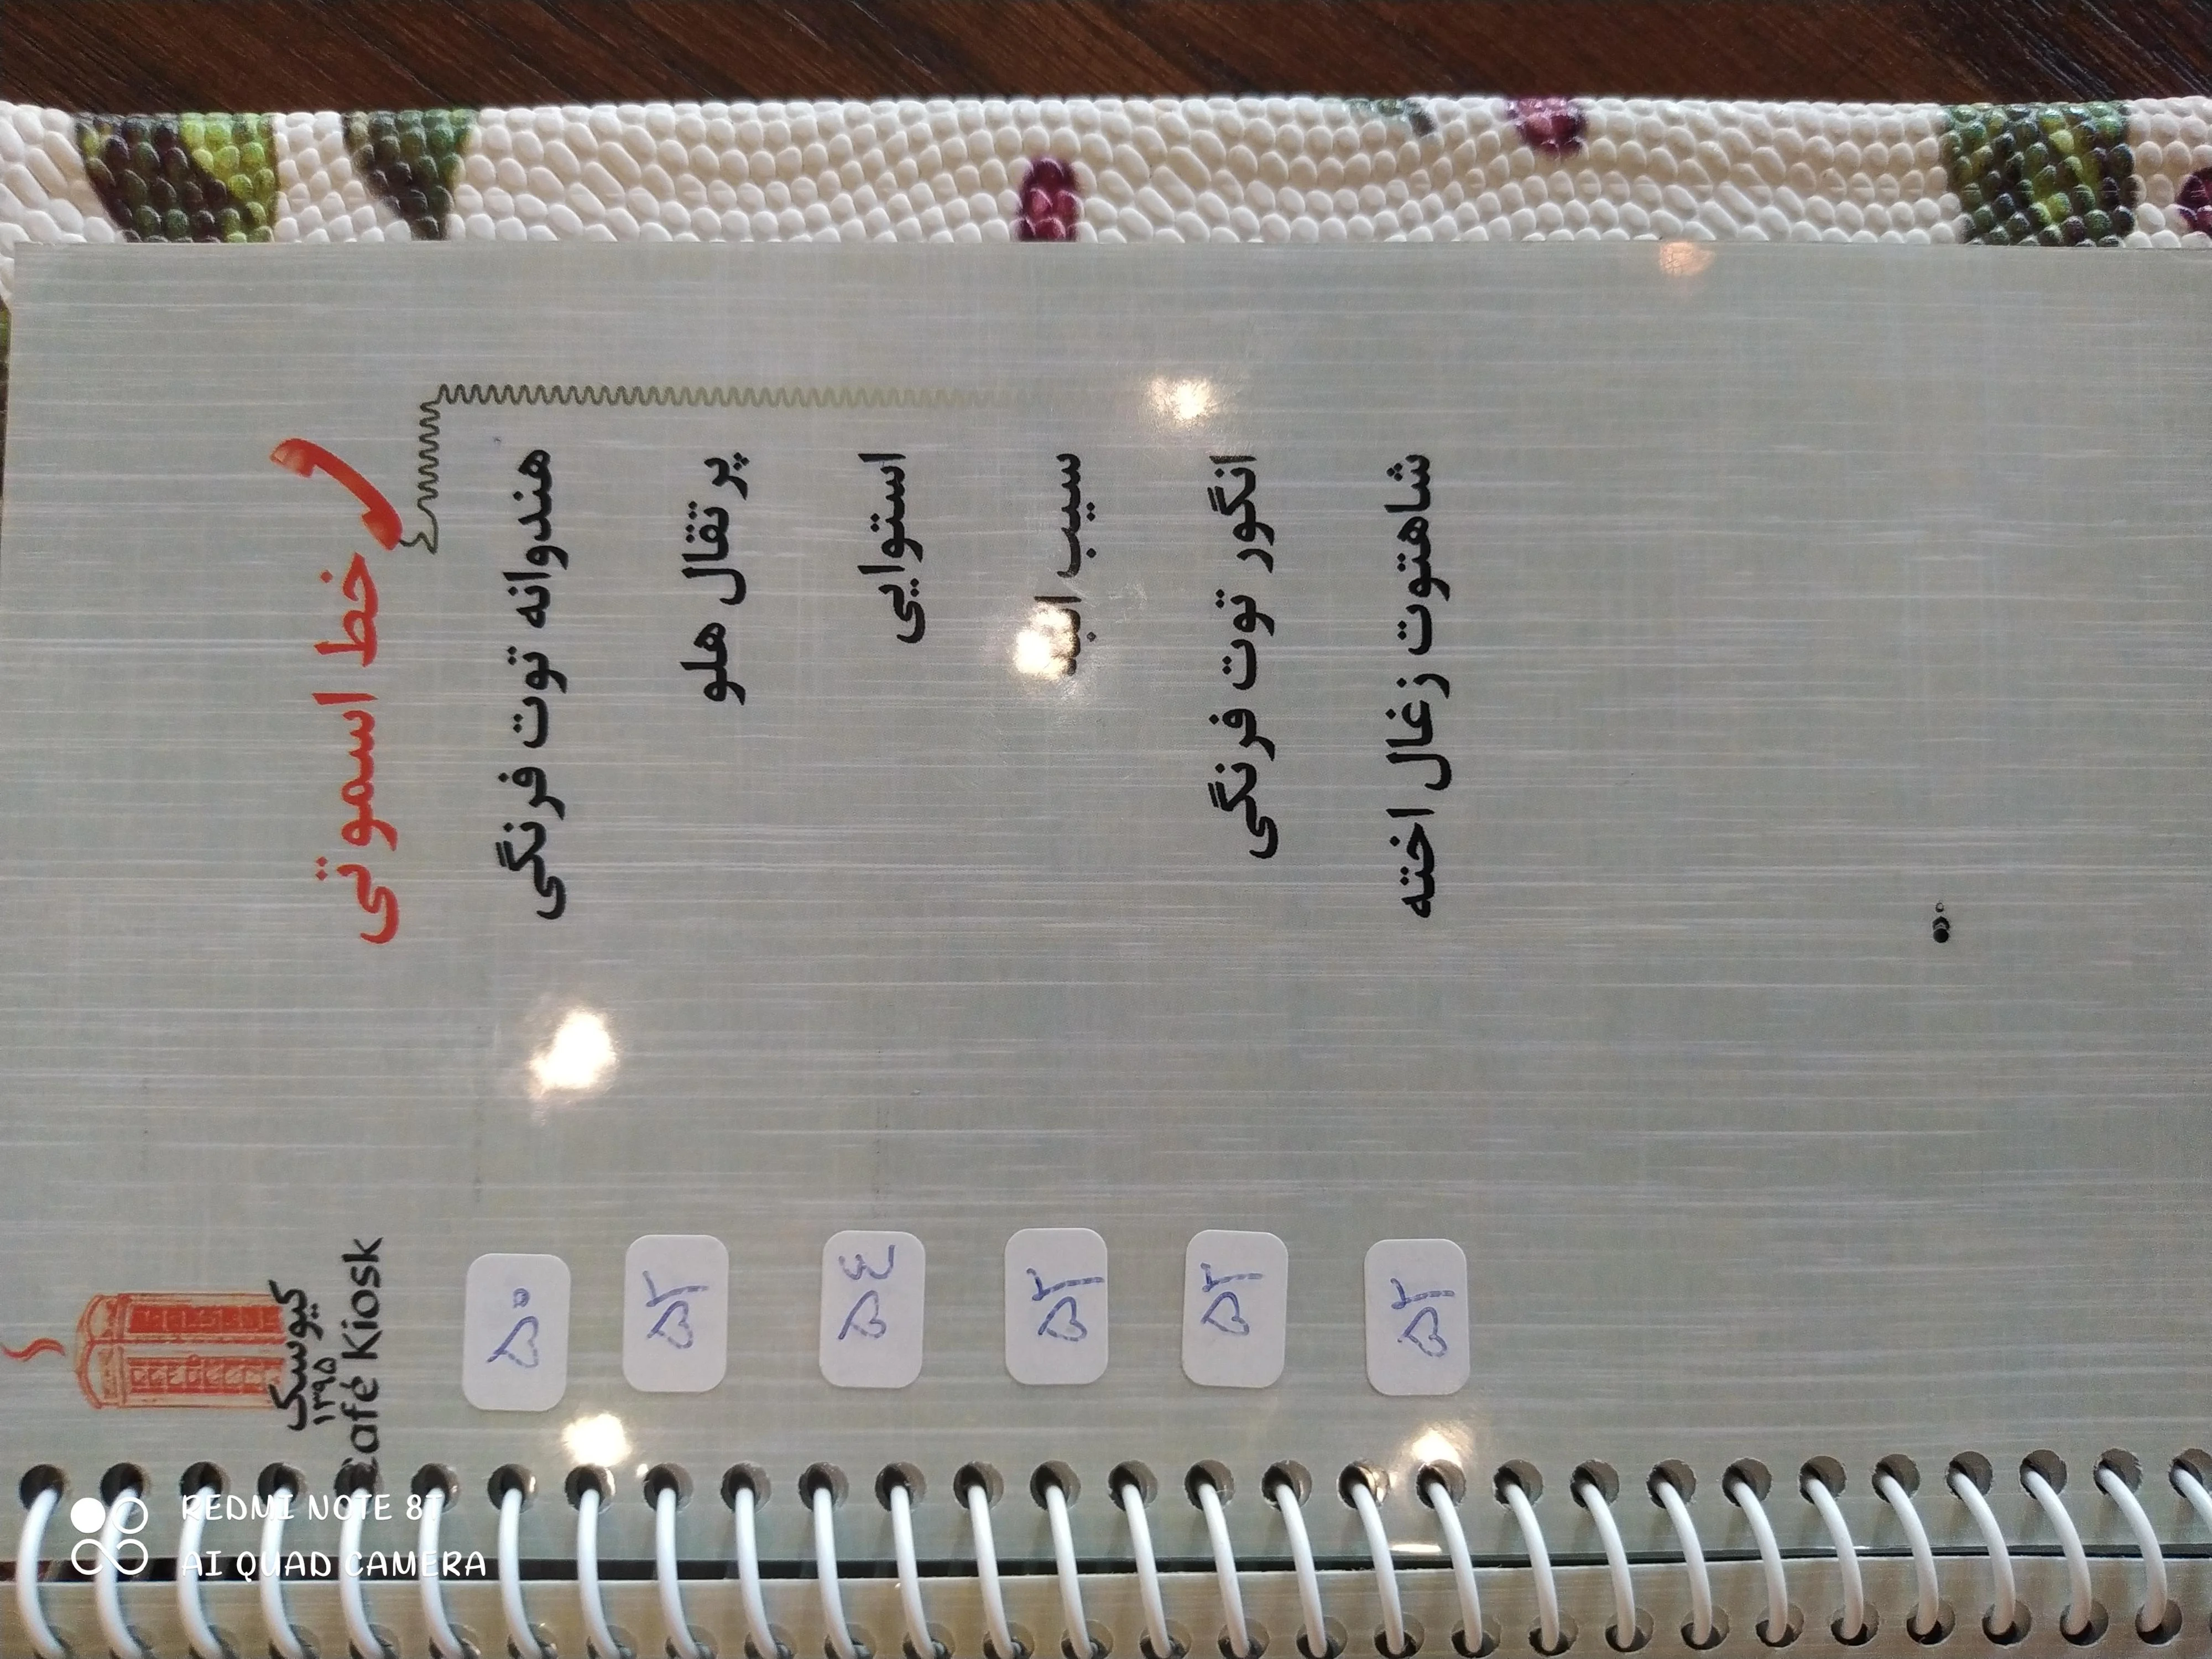 خط اسموتی
هندوانه توت فرنگی ۵۰
پرتقال هلو ۵۲
استوایی ۵۴
سیب ۵۲
انگور توت فرنگی ۵۲
شاهتوت زغال اخته ۵۲
کیوسک
۱۳۹۵
Café Kiosk
REDMI NOTE 8T
AI QUAD CAMERA